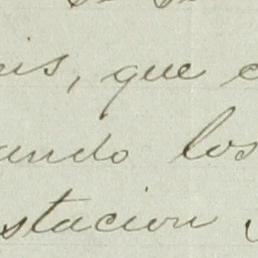 is, que c
ando los
stacion